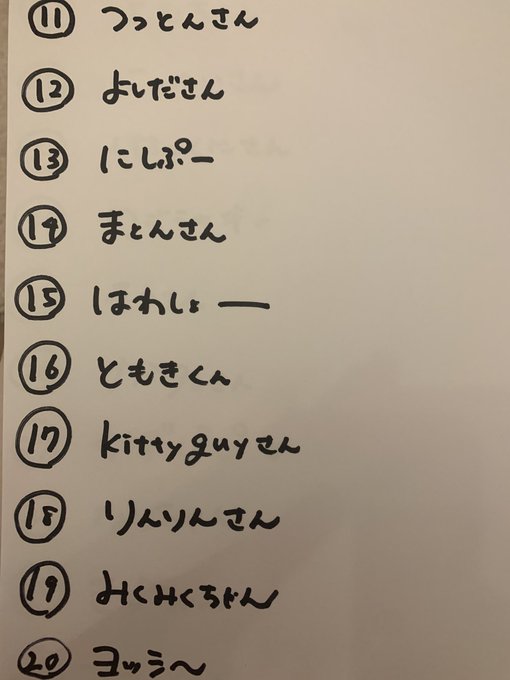 ⑪ つっとんさん
⑫ よしださん
⑬ にしぷー
⑭ まとんさん
⑮ はわしょー
⑯ ともきくん
⑰ kittyguyさん
⑱ りんりんさん
⑲ みくみくちゃん
⑳ ヨッシ〜